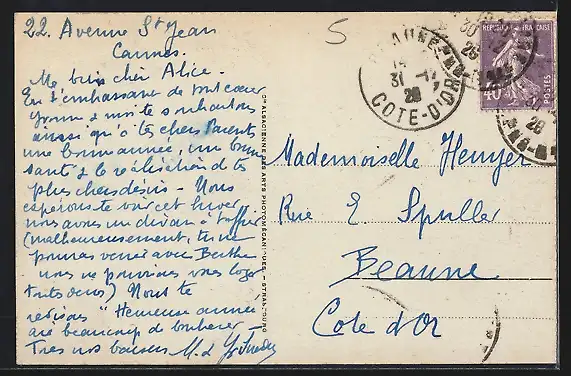 22. Avenue St Jean
Cannes.
Ma bien chère Alice.
En t'embrassant de tout coeur
Yvonne & moi te souhaitons
ainsi qu'à tes chers Parents
une bonne année, une bonne
santé & la réalisation de tes
plus chers désirs - Nous
espérons te voir cet hiver,
nous avons un divan à t'offrir
(malheureusement, tu ne
pourras venir avec Berthe
nous ne pouvions vous loger
toutes deux) Nous te
redisons "Heureuse année
avec beaucoup de bonheur
Tres nos baisers M. &
5
BEAUNE
31 -12
28
COTE-D'OR
REPUBLIQUE FRANÇAISE
40c
POSTES
Mademoiselle Henryer
Rue E Spuller
Beaune
Cote d'Or
Cie ALSACIENNE DES ARTS PHOTOMÉCANIQUES - STRASBOURG